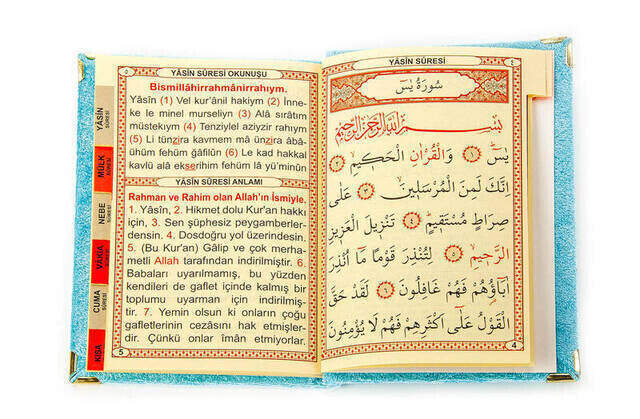 YÂSİN SÛRESİ
٤
سُورَةُ يٰسٓ
بِسْمِ اللّٰهِ الرَّحْمٰنِ الرَّحِيمِ
يٰسٓ ﴿١﴾ وَالْقُرْاٰنِ الْحَكِيمِ ﴿٢﴾
اِنَّكَ لَمِنَ الْمُرْسَلِينَ ﴿٣﴾ عَلٰى
صِرَاطٍ مُسْتَقِيمٍ ﴿٤﴾ تَنْزِيلَ الْعَزِيزِ
الرَّحِيمِ ﴿٥﴾ لِتُنْذِرَ قَوْمًا مَٓا اُنْذِرَ
اٰبَٓاؤُهُمْ فَهُمْ غَافِلُونَ ﴿٦﴾ لَقَدْ حَقَّ
الْقَوْلُ عَلٰٓى اَكْثَرِهِمْ فَهُمْ لَا يُؤْمِنُونَ
4
٥
YÂSİN SÛRESİ OKUNUŞU
Bismillâhirrahmânirrahıym.
Yâsîn (1) Vel kur'ânil hakiym (2) İnne-
ke le minel murseliyn (3) Alâ sırâtım
müstekıym (4) Tenziylel aziyzir rahıym
(5) Li tünzira kavmem mâ ünzira âbâ-
ühüm fehüm ğâfilûn (6) Le kad hakkal
kavlü alâ ekserihim fehüm lâ yü'minûn
YÂSİN SÛRESİ ANLAMI
Rahman ve Rahim olan Allah'ın İsmiyle.
1. Yâsîn, 2. Hikmet dolu Kur'an hakkı
için, 3. Sen şüphesiz peygamberler-
densin. 4. Dosdoğru yol üzerindesin.
5. (Bu Kur'an) Gâlip ve çok merha-
metli Allah tarafından indirilmiştir. 6.
Babaları uyarılmamış, bu yüzden
kendileri de gaflet içinde kalmış bir
toplumu uyarman için indirilmiş-
tir. 7. Yemin olsun ki onların çoğu
gafletlerinin cezâsını hak etmişler-
dir. Çünkü onlar îman etmiyorlar.
5
YÂSİN
SÛRESİ
MÜLK
SÛRESİ
NEBE
SÛRESİ
VÂKIA
SÛRESİ
CUMA
SÛRESİ
KISA